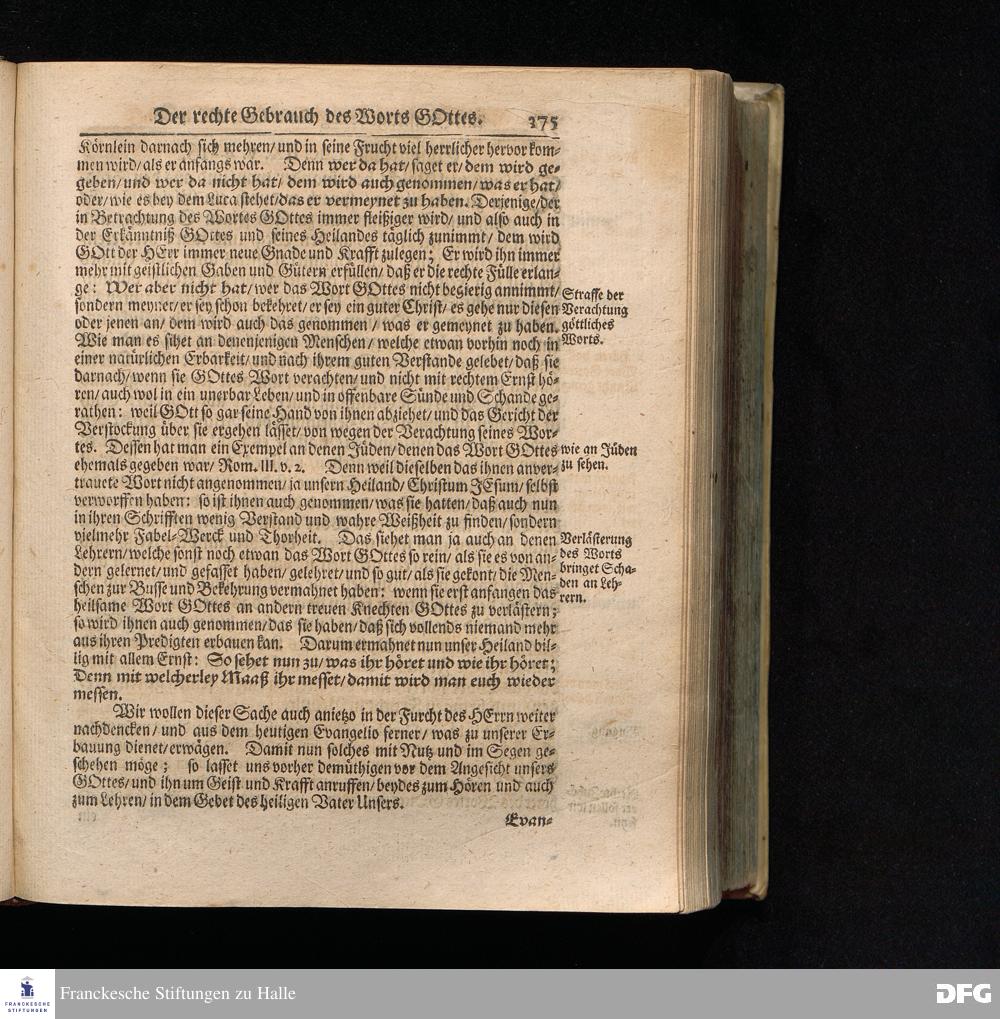 Der rechte Gebrauch des Worts GOttes. 375
Körnlein darnach sich mehren/ und in seine Frucht viel herrlicher hervor kom-
men wird/ als er anfangs war. Denn wer da hat/ saget er/ dem wird ge-
geben/ und wer da nicht hat/ dem wird auch genommen/ was er hat/
oder/ wie es bey dem Luca stehet/ das er vermeynet zu haben. Derjenige/ der
in Betrachtung des Wortes GOttes immer fleißiger wird/ und also auch in
der Erkänntniß GOttes und seines Heilandes täglich zunimmt/ dem wird
GOtt der HErr immer neue Gnade und Krafft zulegen; Er wird ihn immer
mehr mit geistlichen Gaben und Gütern erfüllen/ daß er die rechte Fülle erlan-
ge: Wer aber nicht hat/ wer das Wort GOttes nicht begierig annimmt/
sondern meynet/ er sey schon bekehret/ er sey ein guter Christ/ es gehe nur diesen
oder jenen an/ dem wird auch das genommen/ was er gemeynet zu haben.
Wie man es sihet an denenjenigen Menschen/ welche etwan vorhin noch in
einer natürlichen Erbarkeit/ und nach ihrem guten Verstande gelebet/ daß sie
darnach/ wenn sie GOttes Wort verachten/ und nicht mit rechtem Ernst hö-
ren/ auch wol in ein unerbar Leben/ und in offenbare Sünde und Schande ge-
rathen: weil GOtt so gar seine Hand von ihnen abziehet/ und das Gericht der
Verstockung über sie ergehen lässet/ von wegen der Verachtung seines Wor-
tes. Dessen hat man ein Exempel an denen Jüden/ denen das Wort GOttes
ehemals gegeben war/ Rom. III. v. 2. Denn weil dieselben das ihnen anver-
trauete Wort nicht angenommen/ ja unsern Heiland/ Christum JEsum/ selbst
verworffen haben: so ist ihnen auch genommen/ was sie hatten/ daß auch nun
in ihren Schrifften wenig Verstand und wahre Weißheit zu finden/ sondern
vielmehr Fabel-Werck und Thorheit. Das siehet man ja auch an denen
Lehrern/ welche sonst noch etwan das Wort GOttes so rein/ als sie es von an-
dern gelernet/ und gefasset haben/ gelehret/ und so gut/ als sie gekont/ die Men-
schen zur Busse und Bekehrung vermahnet haben: wenn sie erst anfangen das
heilsame Wort GOttes an andern treuen Knechten GOttes zu verlästern;
so wird ihnen auch genommen/ das sie haben/ daß sich vollends niemand mehr
aus ihren Predigten erbauen kan. Darum ermahnet nun unser Heiland bil-
lig mit allem Ernst: So sehet nun zu/ was ihr höret und wie ihr höret;
Denn mit welcherley Maaß ihr messet/ damit wird man euch wieder
messen.
Wir wollen dieser Sache auch anietzo in der Furcht des HErrn weiter
nachdencken/ und aus dem heutigen Evangelio ferner/ was zu unserer Er-
bauung dienet/ erwägen. Damit nun solches mit Nutz und im Segen ge-
schehen möge; so lasset uns vorher demüthigen vor dem Angesicht unsers
GOttes/ und ihn um Geist und Krafft anruffen/ beydes zum Hören und auch
zum Lehren/ in dem Gebet des heiligen Vater Unsers.
Evan-
Straffe der
Verachtung
göttliches
Worts.
wie an Jüden
zu sehen.
Verlästerung
des Worts
bringet Scha-
den an Leh-
rern.
FRANCKESCHE
STIFTUNGEN
Franckesche Stiftungen zu Halle
DFG